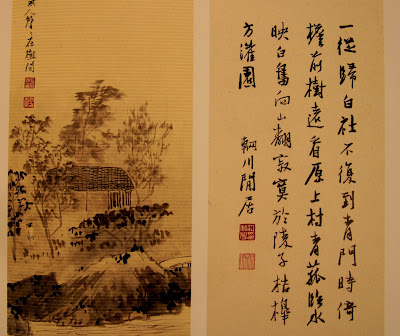 一從歸白社不復到青門時倚
檐前樹遠看原上村青菰臨水
映白鳥向山翻寂寞於陵子桔槔
方灌園 輞川閒居